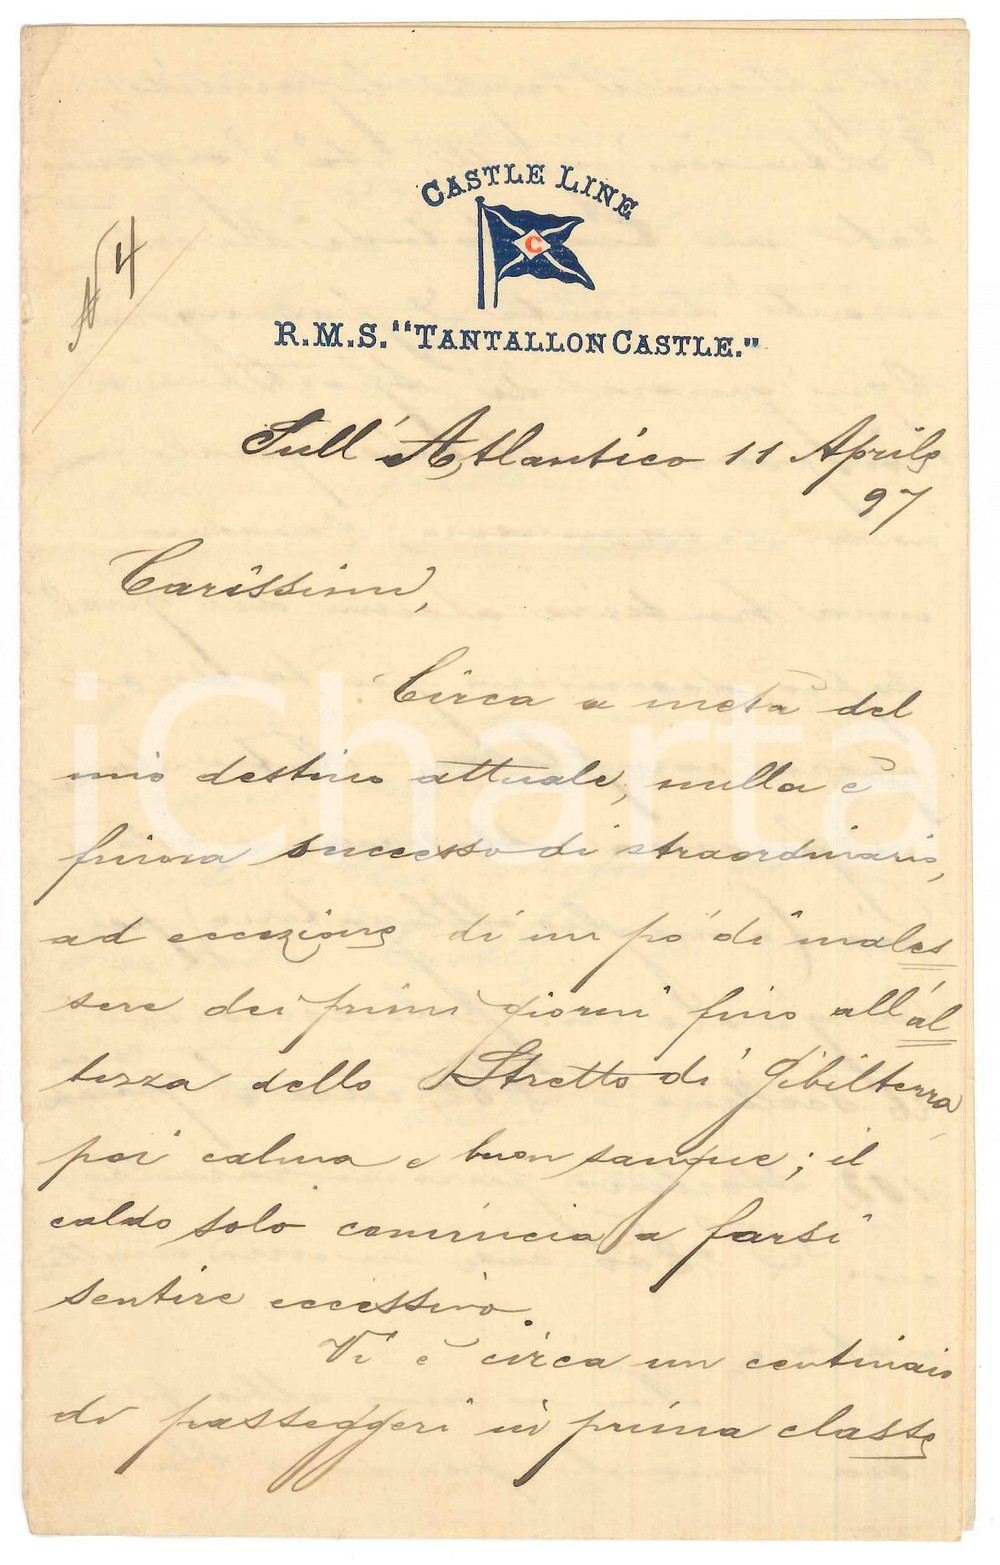 CASTLE LINE
C
R.M.S. "TANTALLON CASTLE."
N 4
Sull'Atlantico 11 Aprile
97
Carissimi,
Circa a metà del
mio destino attuale, nulla è
finora successo di straordinario,
ad eccezione di un pó di males
sere dei primi giorni fino all'al
tezza dello Stretto di Gibilterra,
poi calma e buon sangue; il
caldo solo comincia a farsi
sentire eccessivo.
Vi è circa un centinaio
di passeggeri in prima classe
iCharta